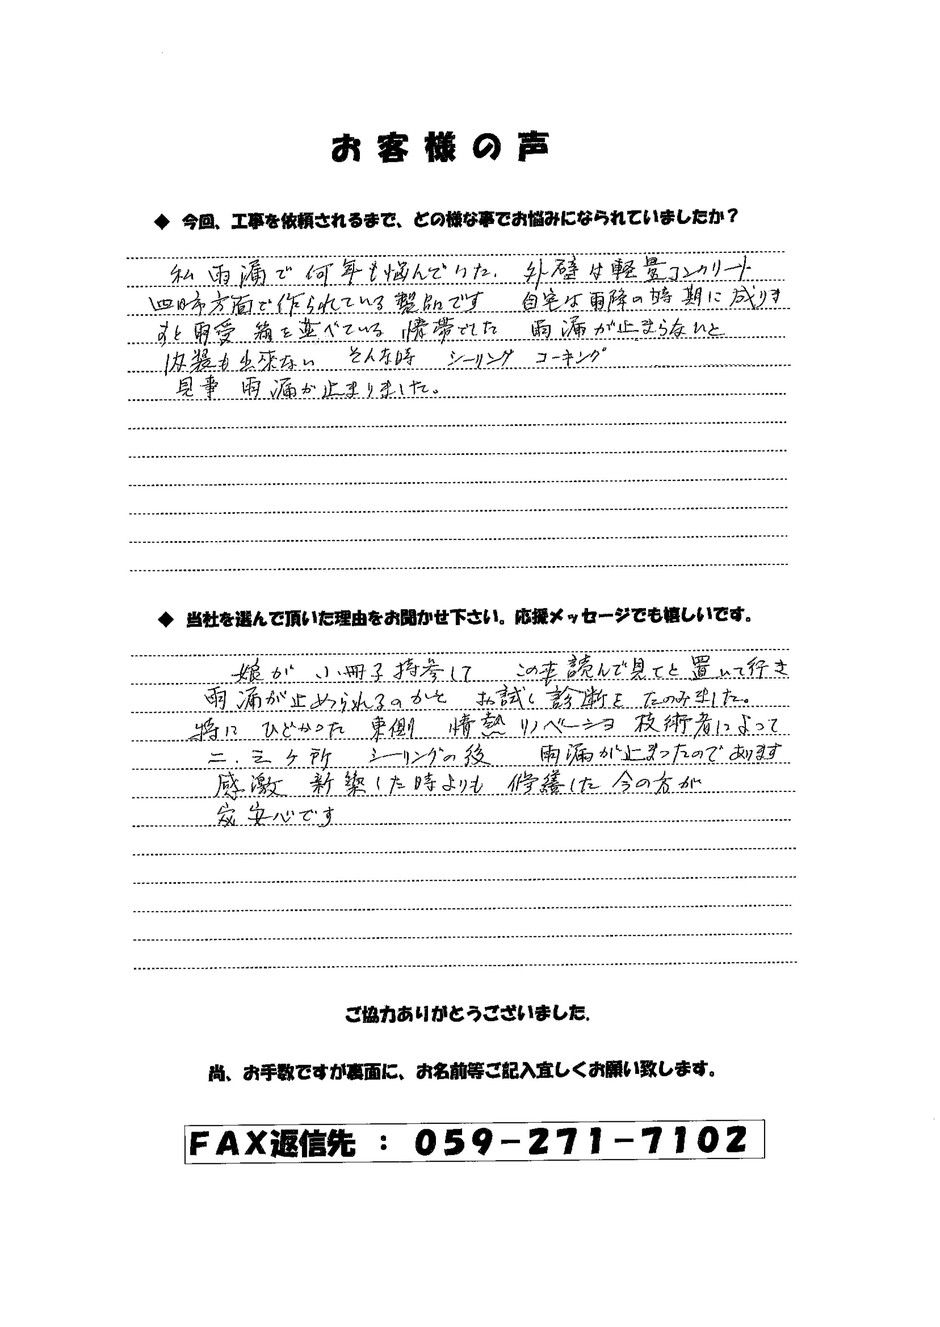 お客様の声
◆ 今回、工事を依頼されるまで、どの様な事でお悩みになられていましたか？
私 雨漏で 何年も悩んでいた. 外壁は軽量コンクリート
四日市方面で作られている製品です 自宅は雨降の時期に成りま
すと雨受 箱を並べている 情帯でした 雨漏が止まらないと
内装も出来ない そんな時 シーリング コーキング
見事 雨漏が止まりました。
◆ 当社を選んで頂いた理由をお聞かせ下さい。応援メッセージでも嬉しいです。
娘が 小冊子持参して この本読んで見てと置いて行き
雨漏が止められるのかと お試し診断をたのみました。
特に ひどかった 東側 情熱リノベーショ 技術者によって
二.三ヶ所 シーリングの後 雨漏が止まったのであります
感激 新築した時よりも 修繕した 今の方が
安心です
ご協力ありがとうございました.
尚、お手数ですが裏面に、お名前等ご記入宜しくお願い致します。
ＦＡＸ返信先 ： ０５９－２７１－７１０２